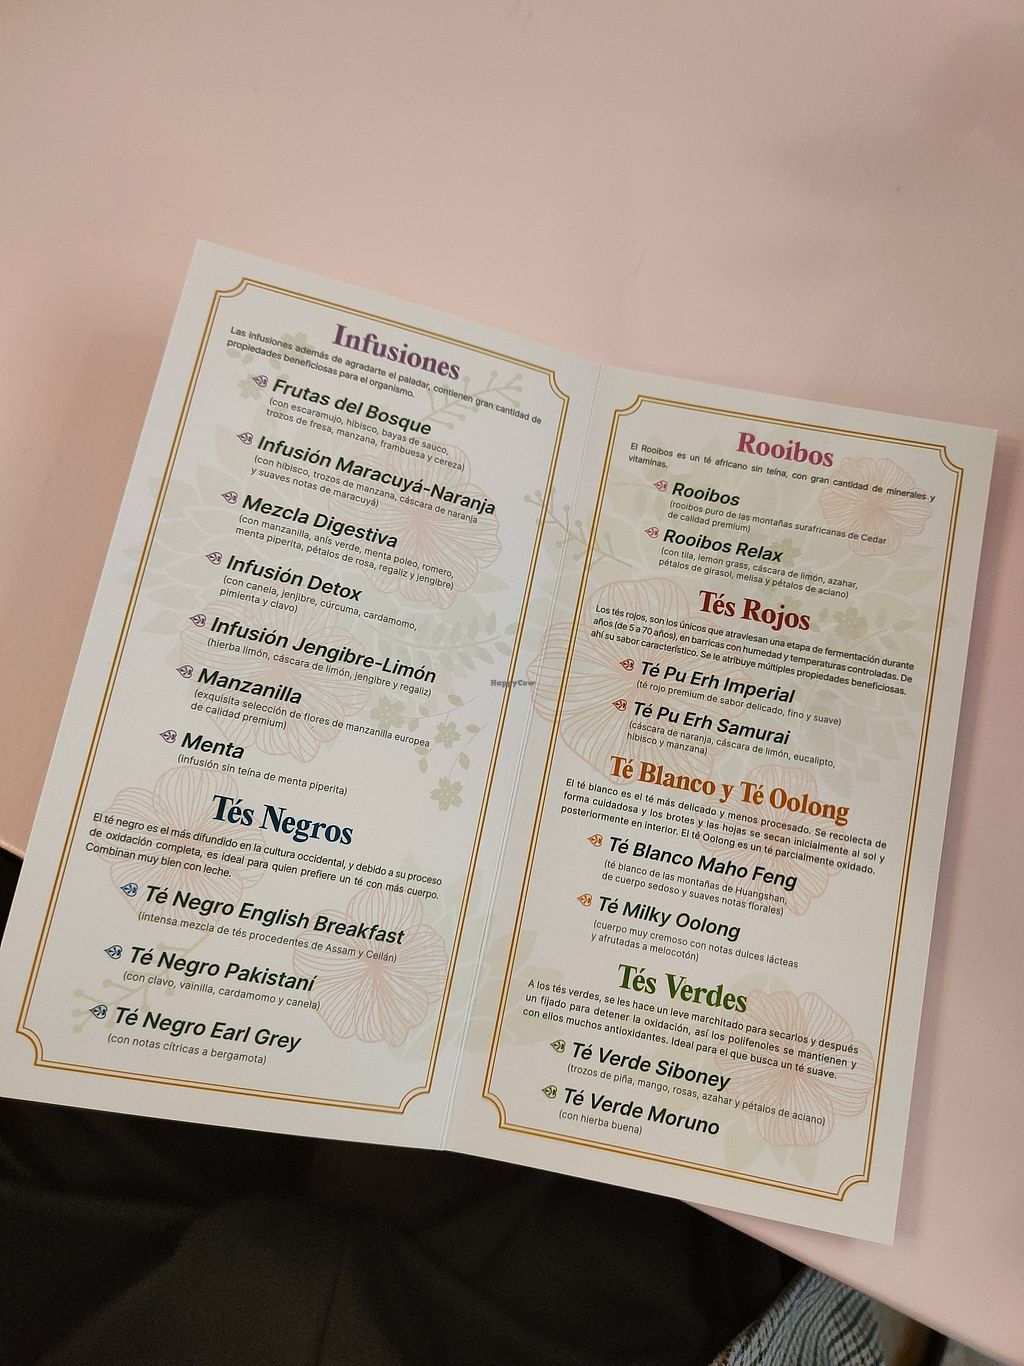 Infusiones
Las infusiones además de agradarte el paladar, contienen gran cantidad de
propiedades beneficiosas para el organismo.
Frutas del Bosque
(con escaramujo, hibisco, bayas de sauco,
trozos de fresa, manzana, frambuesa y cereza)
Infusión Maracuyá-Naranja
(con hibisco, trozos de manzana, cáscara de naranja
y suaves notas de maracuyá)
Mezcla Digestiva
(con manzanilla, anís verde, menta poleo, romero,
menta piperita, pétalos de rosa, regaliz y jengibre)
Infusión Detox
(con canela, jenjibre, cúrcuma, cardamomo,
pimienta y clavo)
Infusión Jengibre-Limón
(hierba limón, cáscara de limón, jengibre y regaliz)
Manzanilla
(exquisita selección de flores de manzanilla europea
de calidad premium)
Menta
(infusión sin teína de menta piperita)
Tés Negros
El té negro es el más difundido en la cultura occidental, y debido a su proceso
de oxidación completa, es ideal para quien prefiere un té con más cuerpo.
Combinan muy bien con leche.
Té Negro English Breakfast
(intensa mezcla de tés procedentes de Assam y Ceilán)
Té Negro Pakistaní
(con clavo, vainilla, cardamomo y canela)
Té Negro Earl Grey
(con notas cítricas a bergamota)
Rooibos
El Rooibos es un té africano sin teína, con gran cantidad de minerales y
vitaminas.
Rooibos
(rooibos puro de las montañas surafricanas de Cedar
de calidad premium)
Rooibos Relax
(con tila, lemon grass, cáscara de limón, azahar,
pétalos de girasol, melisa y pétalos de aciano)
Tés Rojos
Los tés rojos, son los únicos que atraviesan una etapa de fermentación durante
años (de 5 a 70 años), en barricas con humedad y temperaturas controladas. De
ahí su sabor característico. Se le atribuye múltiples propiedades beneficiosas.
Té Pu Erh Imperial
(té rojo premium de sabor delicado, fino y suave)
Té Pu Erh Samurai
(cáscara de naranja, cáscara de limón, eucalipto,
hibisco y manzana)
Té Blanco y Té Oolong
El té blanco es el té más delicado y menos procesado. Se recolecta de
forma cuidadosa y los brotes y las hojas se secan inicialmente al sol y
posteriormente en interior. El té Oolong es un té parcialmente oxidado.
Té Blanco Maho Feng
(té blanco de las montañas de Huangshan,
de cuerpo sedoso y suaves notas florales)
Té Milky Oolong
(cuerpo muy cremoso con notas dulces lácteas
y afrutadas a melocotón)
Tés Verdes
A los tés verdes, se les hace un leve marchitado para secarlos y después
un fijado para detener la oxidación, así los polifenoles se mantienen y
con ellos muchos antioxidantes. Ideal para el que busca un té suave.
Té Verde Siboney
(trozos de piña, mango, rosas, azahar y pétalos de aciano)
Té Verde Moruno
(con hierba buena)
HappyCow